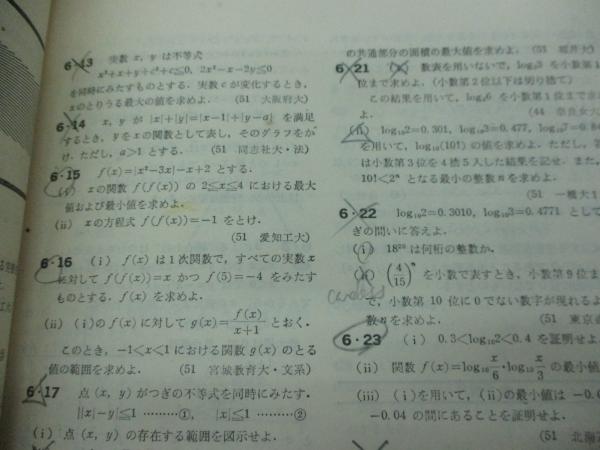 6・13 実数 x, y は不等式
x²+x+y+c²+c≦0, 2x²−x−2y≦0
を同時にみたすものとする. 実数 c が変化するとき,
xのとりうる最大の値を求めよ. (51 大阪府大)
6・14 x, y が |x|+|y|=|x−1|+|y−a| を満足
するとき, yをxの関数として表し, そのグラフをか
け. ただし, a>1 とする. (51 同志社大・法)
6・15 f(x)=|x²−3x|−x+2 とする.
(i) xの関数 f(f(x)) の 2≦x≦4 における最大
値および最小値を求めよ.
(ii) xの方程式 f(f(x))=−1 をとけ.
(51 愛知工大)
6・16 (i) f(x) は1次関数で, すべての実数 x
に対して f(f(x))=x かつ f(5)=−4 をみたす
ものとする. f(x) を求めよ.
(ii) (i)の f(x) に対して g(x)=f(x)/(x+1) とおく.
このとき, −1<x<1 における関数 g(x) のとる
値の範囲を求めよ. (51 宮城教育大・文系)
6・17 点 (x, y) がつぎの不等式を同時にみたす.
||x|−y|≦1 ………①, |x|≦1 ………②
(i) 点 (x, y) の存在する範囲を図示せよ.
の共通部分の面積の最大値を求めよ. (51
6・21 数表を用いないで, log₂3 を小数第1
位まで求めよ. (小数第2位以下は切り捨て)
この結果を用いて, log₄6 を小数第1位まで
(44 奈良女
(ii) log₁₀2=0.301, log₁₀3=0.477, log₁₀7=0.84
を用いて, log₁₀(10!) の値を求めよ. ただし,
は小数第3位を4捨5入した結果を記せ. また,
10!<2ⁿ となる最小の整数 n を求めよ.
(51 一橋大
6・22 log₁₀2=0.3010, log₁₀3=0.4771 として
ぎの問いに答えよ.
(i) 18²⁰ は何桁の整数か.
(ii) (4/15)ⁿ を小数で表すとき, 小数第9位ま
で, 小数第 10 位に0でない数字が現れるよ
数 n を求めよ. (51 東京
6・23 (i) 0.3<log₁₀2<0.4 を証明せよ
(ii) 関数 f(x)=log₁₀ x/6・log₁₀ x/3 の最小値
(iii) (i)を用いて, (ii)の最小値は −0.0
−0.04 の間にあることを証明せよ.
(51 北海